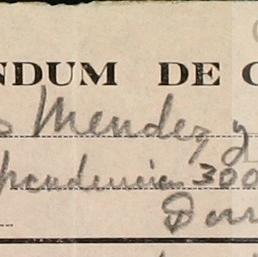 NDUM DE C
s Mendez y
pendencia 300
Dom